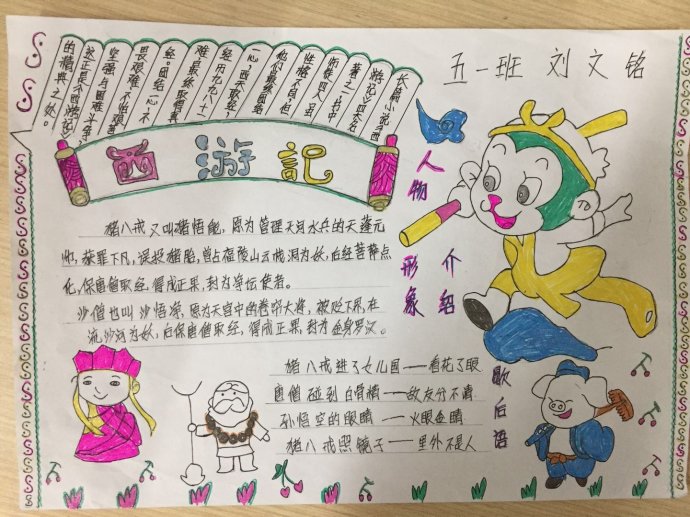 五一班 刘文铭
长篇小说《西
游记》四大名
著之一书中
师徒四人,虽
性格不同,但
他们最终团结
一心,西天取经,
经历九九八十一
难,最终取得真
经。团结一心,不
畏艰难、不怕艰苦、
坚强与困难斗争,
这正是《西游记》
的精典之处。
西游記
人物
形象
介绍
猪八戒又叫猪悟能,原为管理天河水兵的天蓬元
帅,获罪下凡,误投猪胎,曾占福陵山云栈洞为妖,后经菩萨点
化,保唐僧取经,得成正果,封为净坛使者。
沙僧也叫沙悟净,原为天宫中的卷帘大将,被贬下界,在
流沙河为妖,后保唐僧取经,得成正果,封为金身罗汉。
歇后语
猪八戒进了女儿国——看花了眼
唐僧碰到白骨精——敌友分不清
孙悟空的眼睛——火眼金睛
猪八戒照镜子——里外不是人